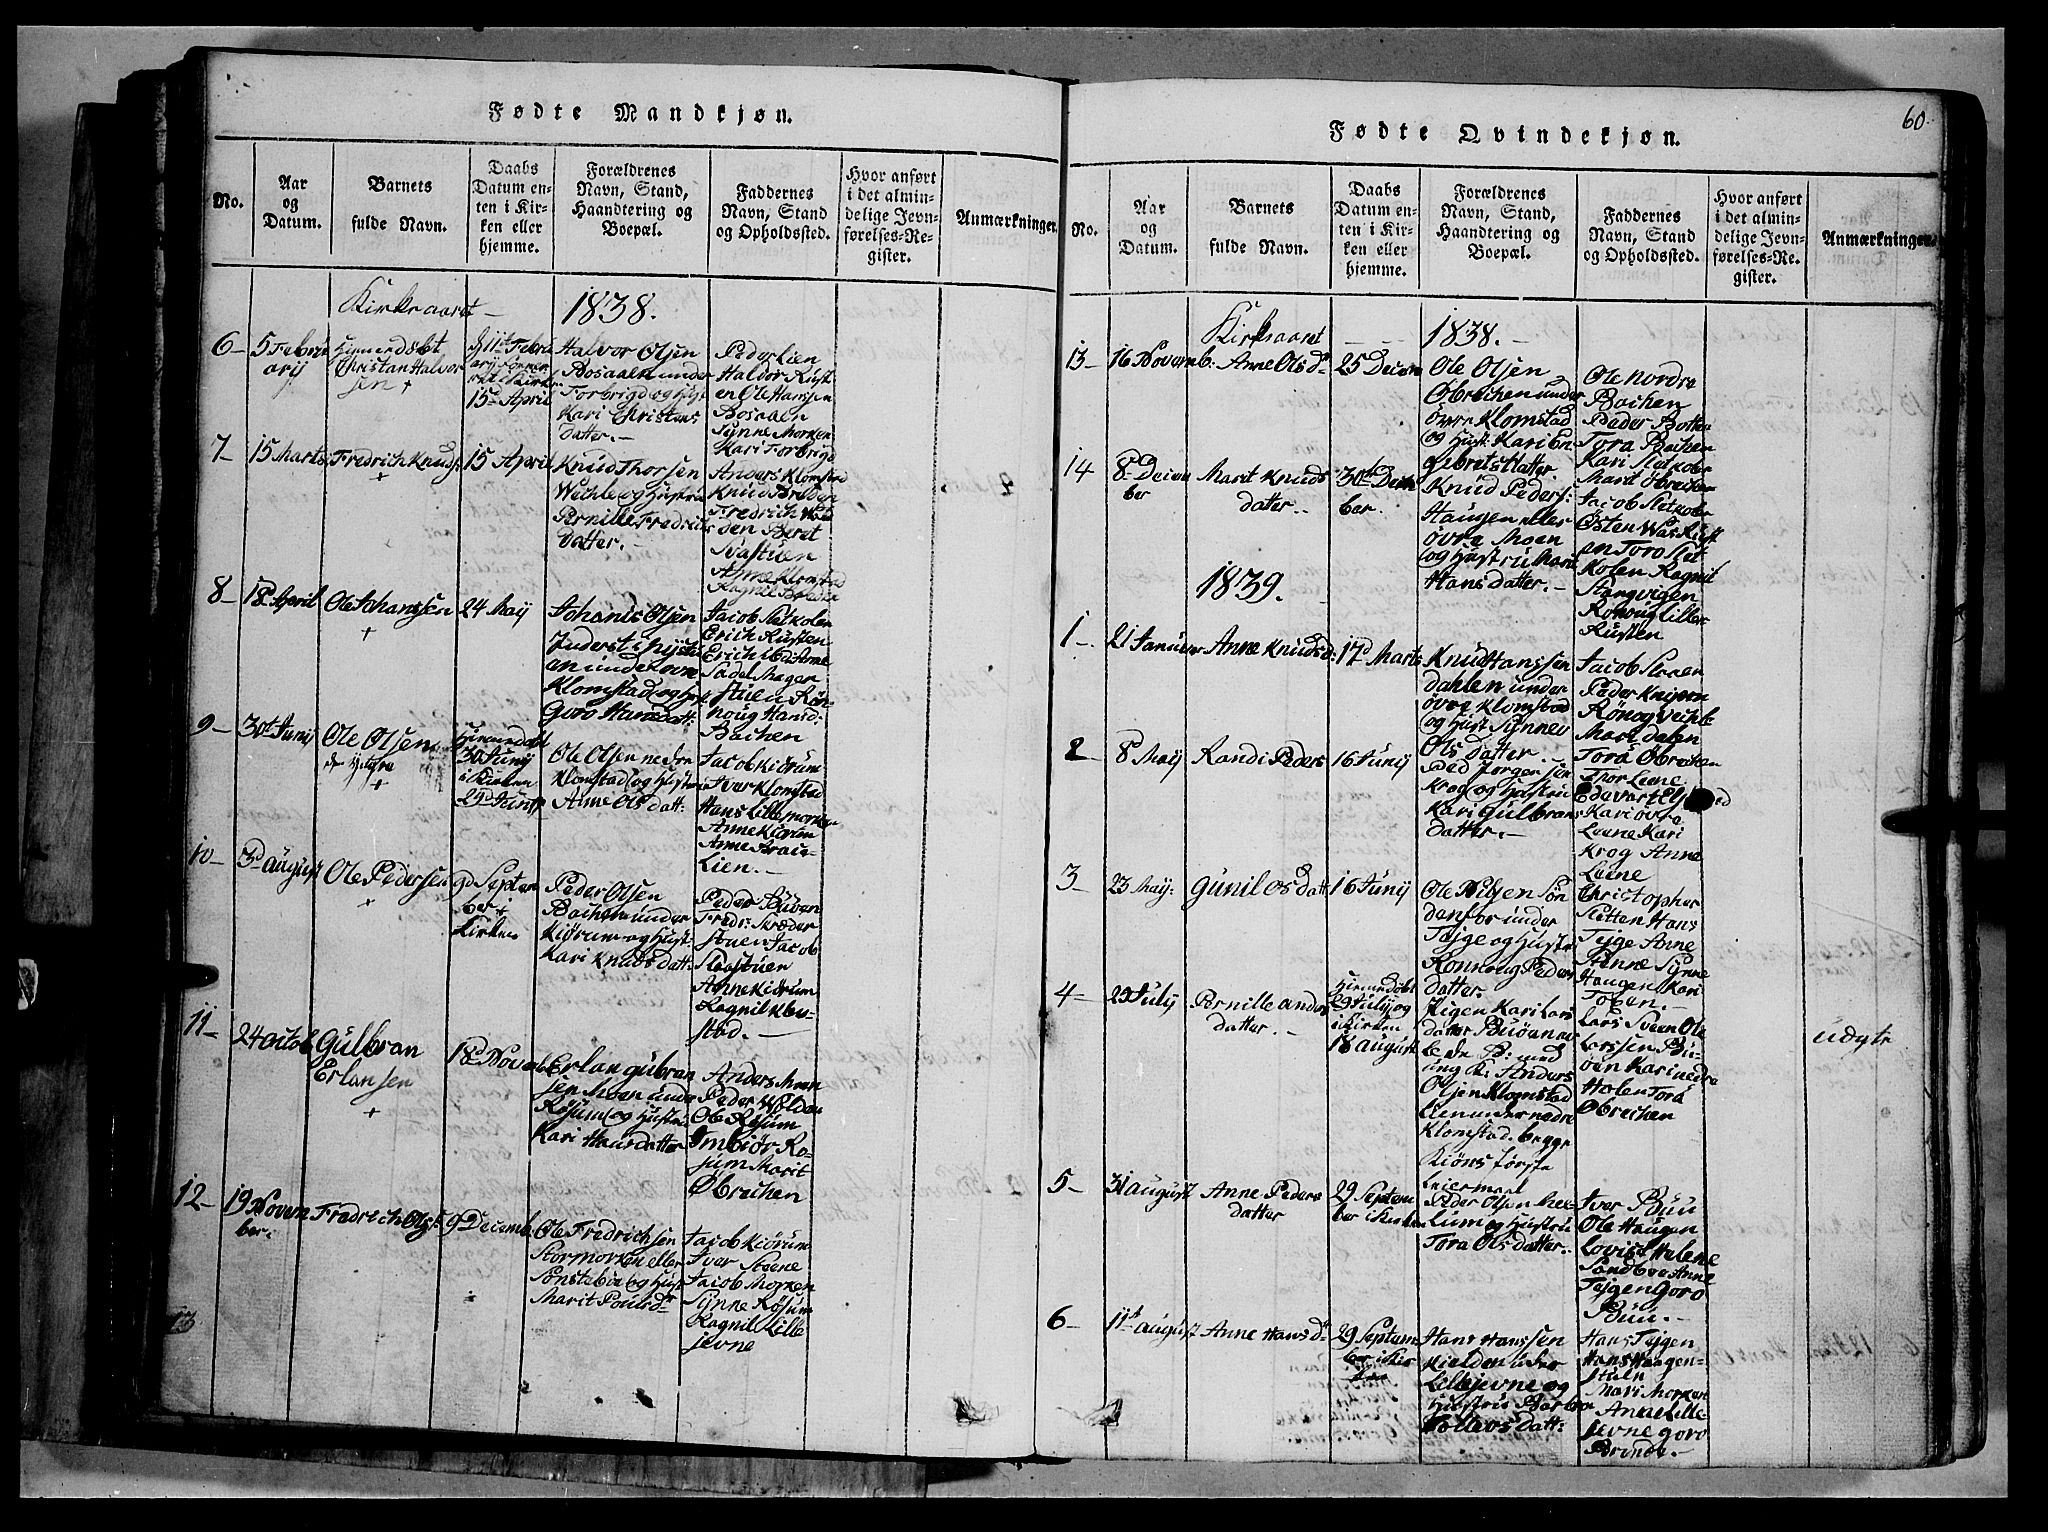 Fødte Mandkjøn.
No.
Aar
og
Datum.
Barnets
fulde Navn.
Daabs
Datum en-
ten i Kir-
ken eller
hjemme.
Forældrenes
Navn, Stand,
Haandtering og
Boepæl.
Faddernes
Navn, Stand
og Opholdssted.
Hvor anført
i det almin-
delige Jevn-
førelses-Re-
gister.
Anmærkninger.
Kirkeaaret – 1838.
6 –
5 Febru
arij
Christan Halvor
sen +
15 April
Halvor Olsen
Bosaalen under
Forbrigd og Hust
Kari Christens
datter. –
Peder Lien
Haldor Rust
en Ole Hanssen
Bosaaen
Synne Morken
Kari Forbrigd
7 –
15 Marts
Fredrich Knuds:
+
15 April
Knud Thorsen
Wehle og Hustru
Pernille Fredrichs
datter. –
Anders Klomstad
Knud Breden
Fredrich Wol
den Beret
Svastuen
Anne Klomstad
Ragnil Breden
8 –
18 April
Ole Johanssen
+
24 Maij
Johanis Olsen
Inderst i Nystu
en under øvre
Klomstad og Hust
Goro Hansdatt:
Jacob Sletkolen
Erich Rusten
Erich
Stuen Røn-
noug Hansd:
Bachen
9 –
30t Junij
Ole Olsen
+
30 Junij
i Kirken
Ole Olsen nedre
Klomstad og Hustru
Anne Ols datt:
Jacob Kiørum
Iver Klomstad
Hans Lillemorken
Anne Kiørum
Anne Brau-
Lien. –
10 –
3d August
Ole Pedersen
+
9d Septem
ber i
Kirken
Peder Olsen
Bachen under
Kiørum og Hust:
Kari Knuds datt:
Peder Buven
Fredr: Skræder
stuen Jacob
Slaastuen
Anne Kiørum
Ragnil Klom
stad. –
11 –
24 Octob
Gulbran
Erlansen
+
18d Novemb
Erlan Gulbran
sen Moen under
Røsum og Hustru
Kari Hansdatter
Anders Moen
Peder Wolden
Ole Røsum
Imbiør Rø-
sum Marit
Øbrechen
12 –
19 Novem
ber.
Fredrich Ols:
9 Decemb:
Ole Fredrichsen
Stormorken eller
Sønstebøe og Hust
Marit Pouls dr
Jacob Kiørum
Iver Steene
Jacob Morken
Synne Røsum
Ragnil Lille
jevne
13
60.
Fødte Qvindekjøn.
No.
Aar
og
Datum.
Barnets
fulde Navn.
Daabs
Datum en-
ten i Kir-
ken eller
hjemme.
Forældrenes
Navn, Stand,
Haandtering og
Boepæl.
Faddernes
Navn, Stand
og Opholdssted.
Hvor anført
i det almin-
delige Jevn-
førelses-Re-
gister.
Anmærkninger.
Kirkeaaret – – 1838. –
13 –
16 Novemb:
Anne Ols dr
25 Decem
Ole Olsen
Øbrechen under
øvre Klomstad
og Hust: Kari En
gebrets datter
Ole Nordre
Bachen
Peder Botten
Tora Bachen
Kari Sletkolen
Marit Øbrechen
14
8 – Decem
ber
Marit Knuds
datter. –
30te Decem
ber.
Knud Peders:
Haugen eller
øvre Moen
og Hustru Marit
Hans datter. –
Jacob Sletkolen
Østen Was Rust
en Toro Slet
kolen Ragnil
Stangvigen
Rønoug Lille
Rusten
1839.
1 –
21 Januar
Anne Knudsd:
17d Marts
Knud Hanssen
dahlen under
øvre Klomstad
og Hust Synnev
Ols datter. –
Jacob Sloen
Peder Knipen
Rønog Vehle
Mari dalen
Tora Øbrechen
2
8 Maij
Randi Peders
16 Junij
Ped Jørgensen
Krog og Hustru
Kari Gulbrans
datter. –
Thor Leene
Kari øvre
Leene Kari
Krog Anne
Leene
3 –
23 Maij:
Gunil Os datt:
16 Junij
Ole Nilsen Søn
denfor under
Tejge og Hustru
Ronnoug Peders
datter.
Christopher
Sletten Hans
Tejge Anne
Synne
Haugen Kari
4 –
29 July
Pernille Anders
datter. –
29 July og
i Kirken
18 August
Pigen Kari Lars
datter Buøen
ung K: Anders
Olsen Klomstad
Lien under nedre
Klomstad. begge
Kiøns første
Leiermaal
Lars Sveen Ole
Larssen Bu-
øen Kari nedre
Holen Tora
Øbrechen
udgte
5 –
31 August
Anne Peders
datter
29 Septem
ber i Kirken
Peder Olsen
lum og Hustru
Tora Ols datter. –
Iver Buu
Ole Haugen
Lovise Helene
Sandboe Anne
Tejgen Goro
Buu. –
6 –
11t August
Anne Hans dr
29 Septem
ber i Kir
ken
Hans Hanssen
Kielden under
Lillejevne og
Hustru Barbro
Tollevs datt:
Hans Tejgen
Hans Haagen-
stuen
Mari Morken
Anne Lille-
jevne Goro